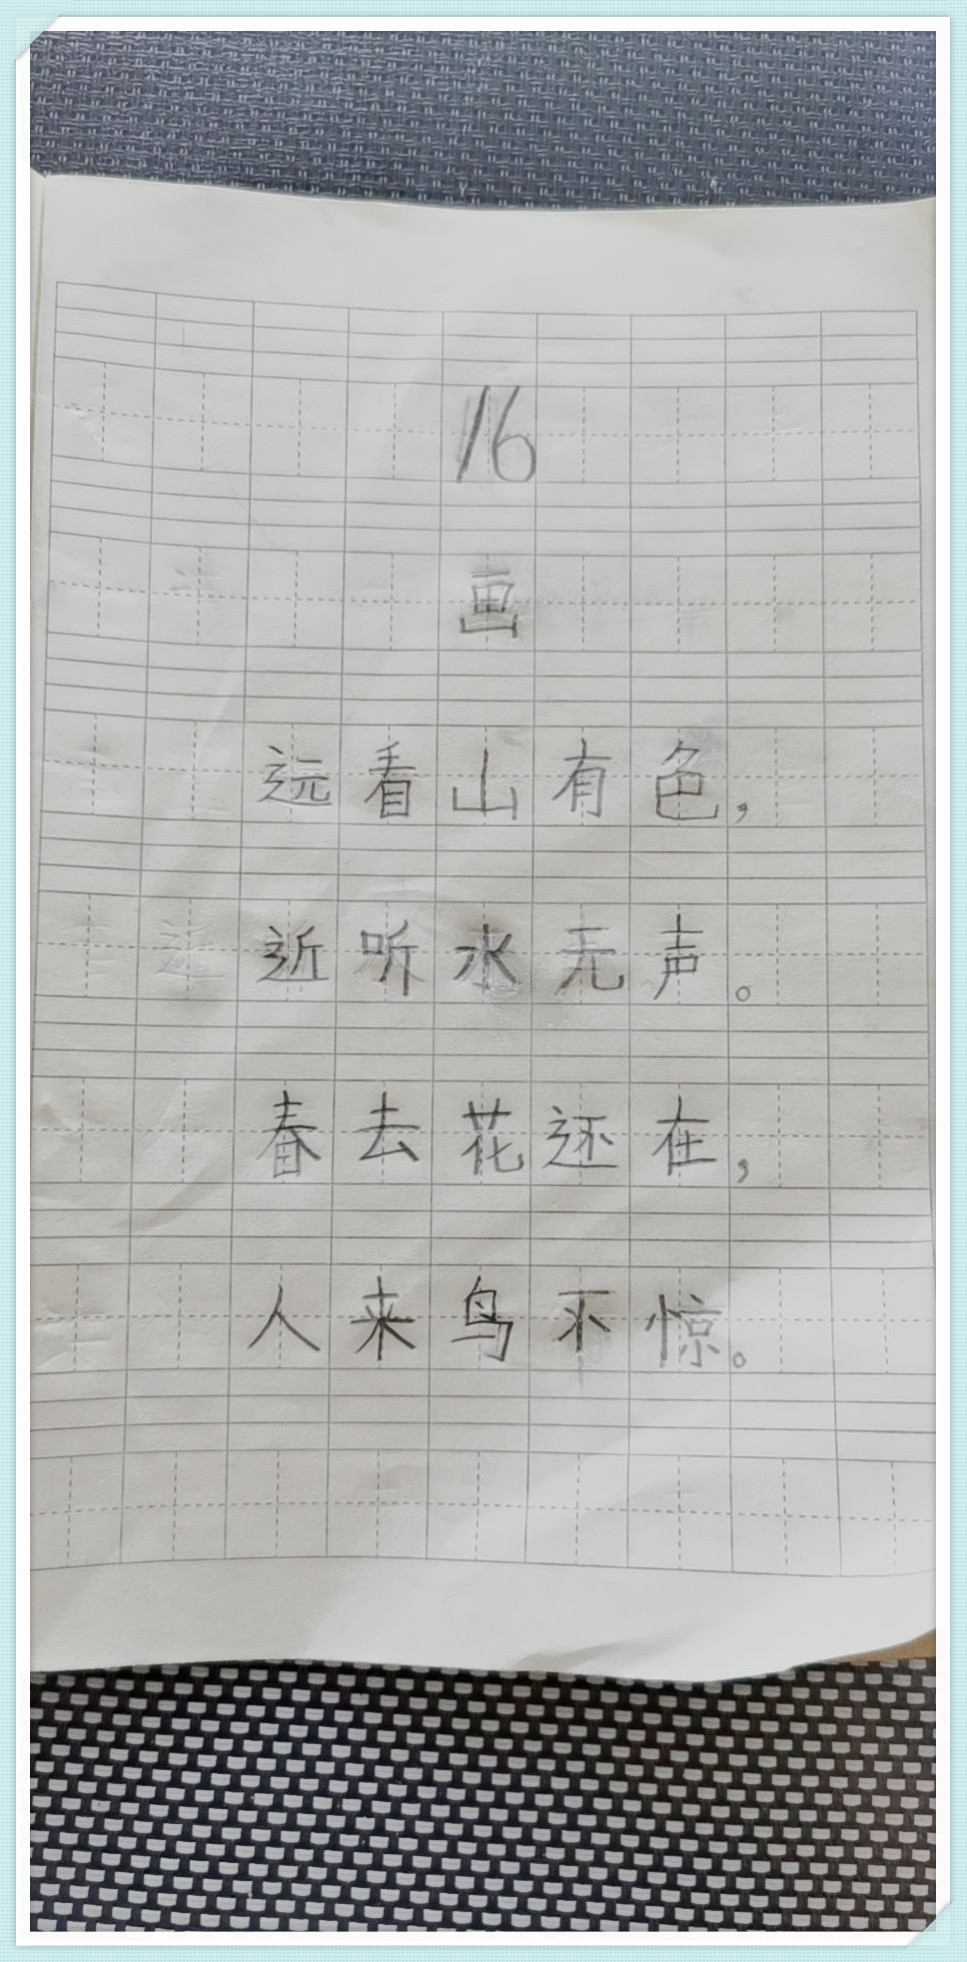 16
画
远看山有色，
近听水无声。
春去花还在，
人来鸟不惊。